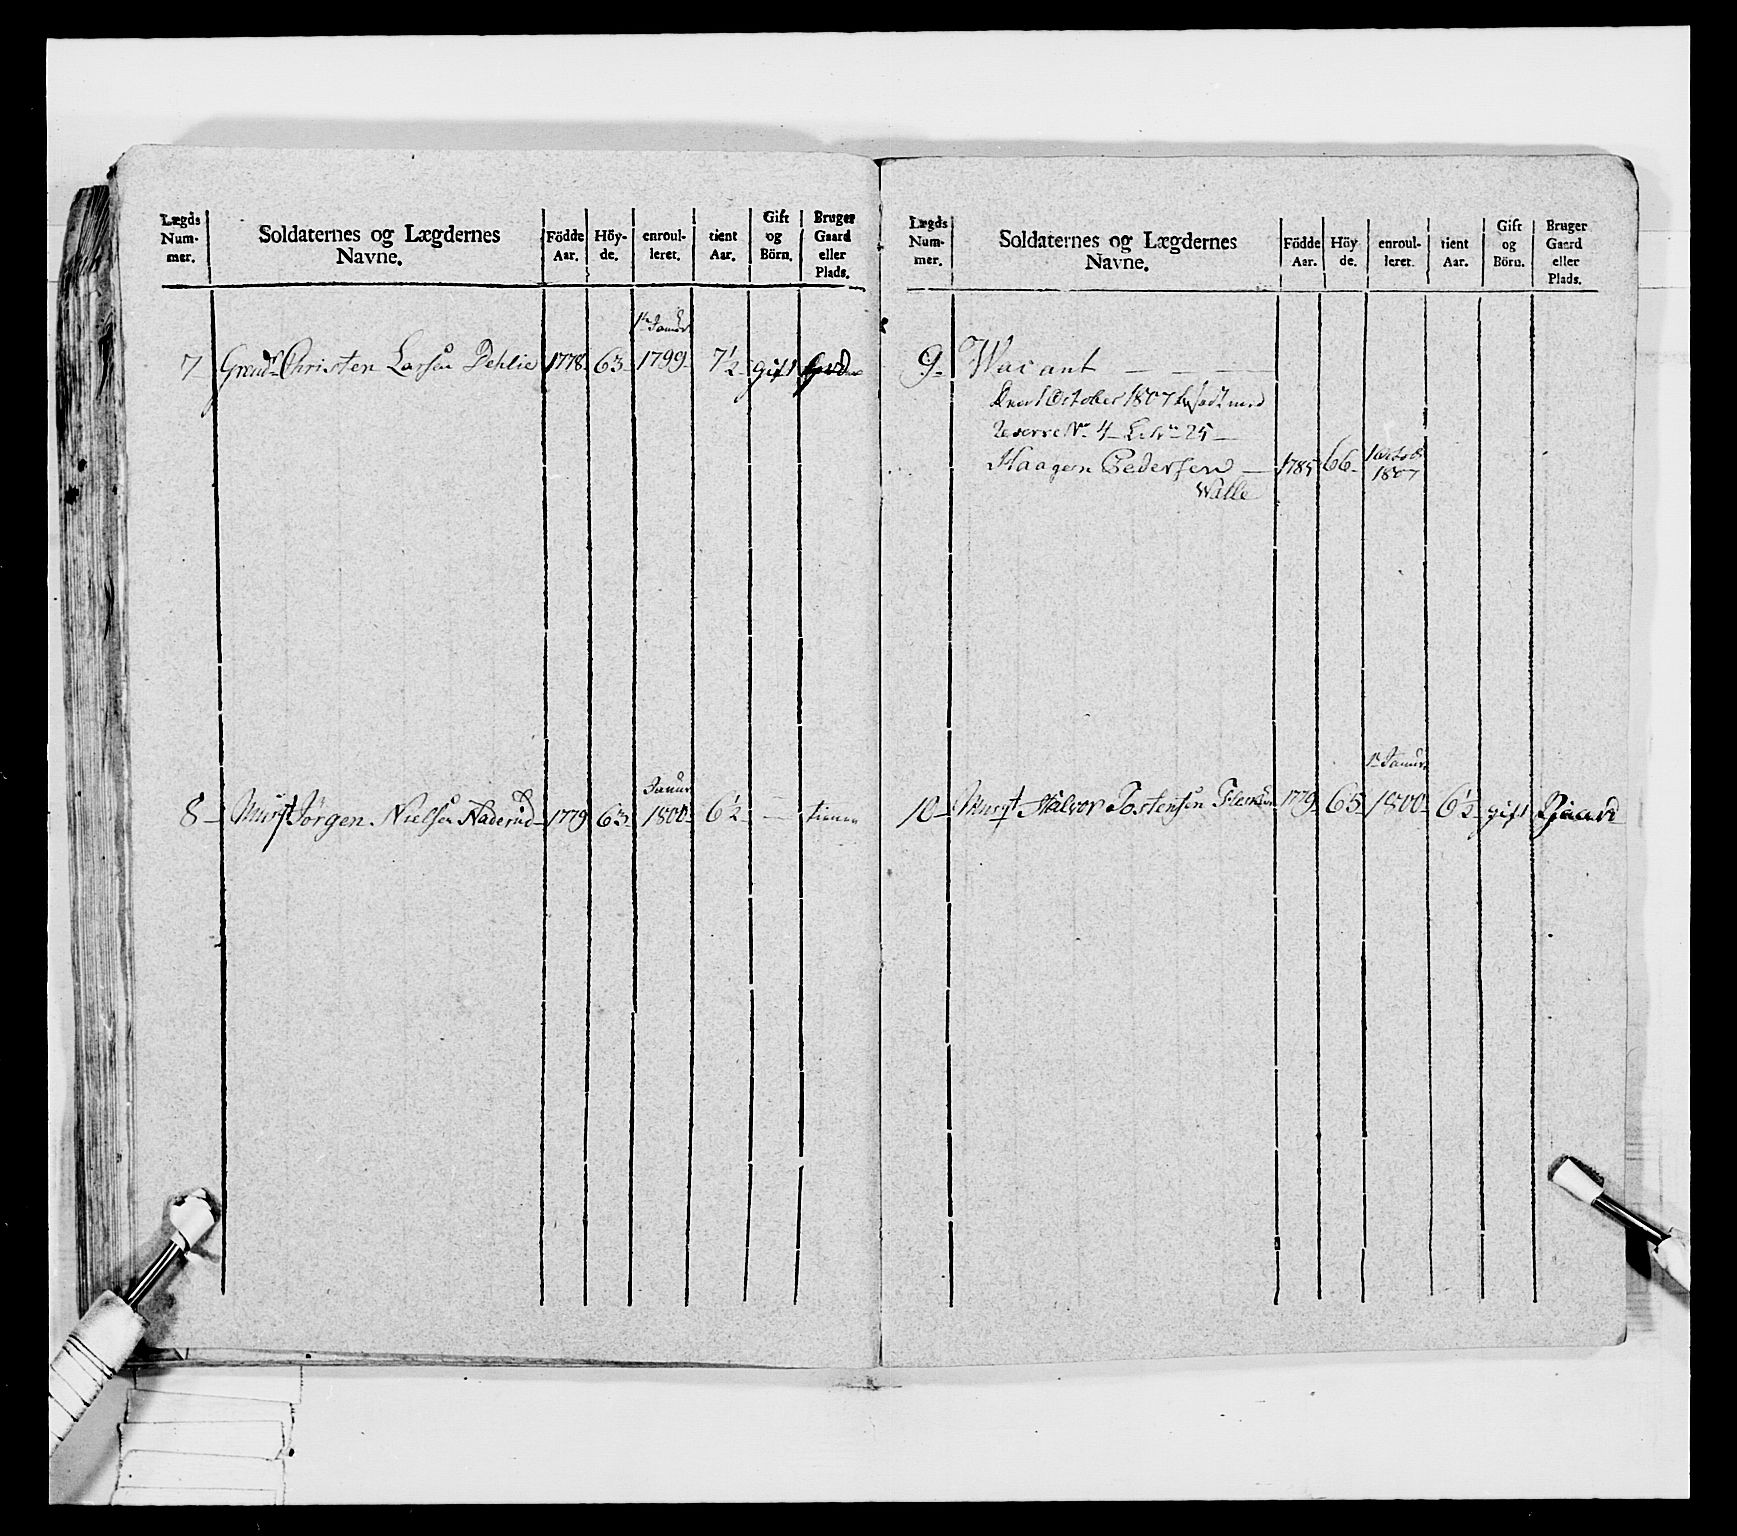 Lægds Num- mer. Soldaternes og Lægdernes Navne. Födde Aar. Höy- de. enroul- leret. tient Aar. Gift og Börn. Bruger Gaard eller Plads.
1te Januar
7 Christen Larsen Dehlie 1778 63 1799 7½ gift
Januar
8 Musqt Jørgen Nielsen Haderud 1779 63 1800 6½ — tiener
Lægds Num- mer. Soldaternes og Lægdernes Navne. Födde Aar. Höy de. enroul- leret. tient Aar. Gift og Börn. Bruger Gaard eller Plads.
9 Vacant — — —
October 1807 besadt med
Reserve No 4 25 —
Haagen Pedersen — 1785 66 1 Octob 1807
Watle
1te Januar
10 Musqt Halvor Tostensen 1779 65 1800 6½ gift Gaard